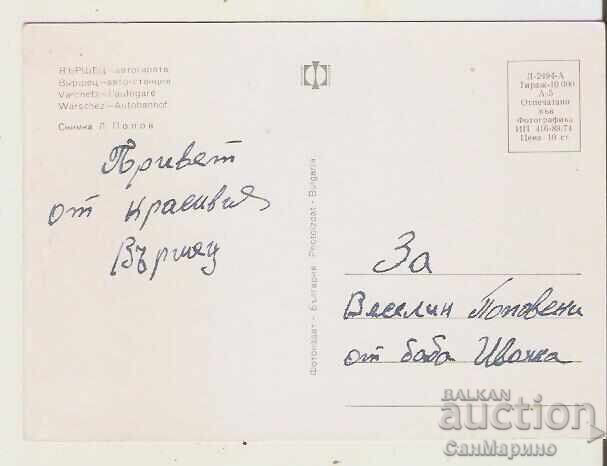 ВЪРШЕЦ – автогарата
Выршец – авто-станция
Varchetz – L'autogare
Warschez – Autobanhof
Снимка Л. Попов
Привет
от красивия
Вършец
Фотоиздат - България Photoizdat - Bulgaria
Д-2494-А
Тираж-10 000
А-5
Отпечатано
във
Фотографика
ИП 416-89.74
Цена 10 ст.
За
Веселин
от баба Иванка
BALKAN
auction
СанМарино